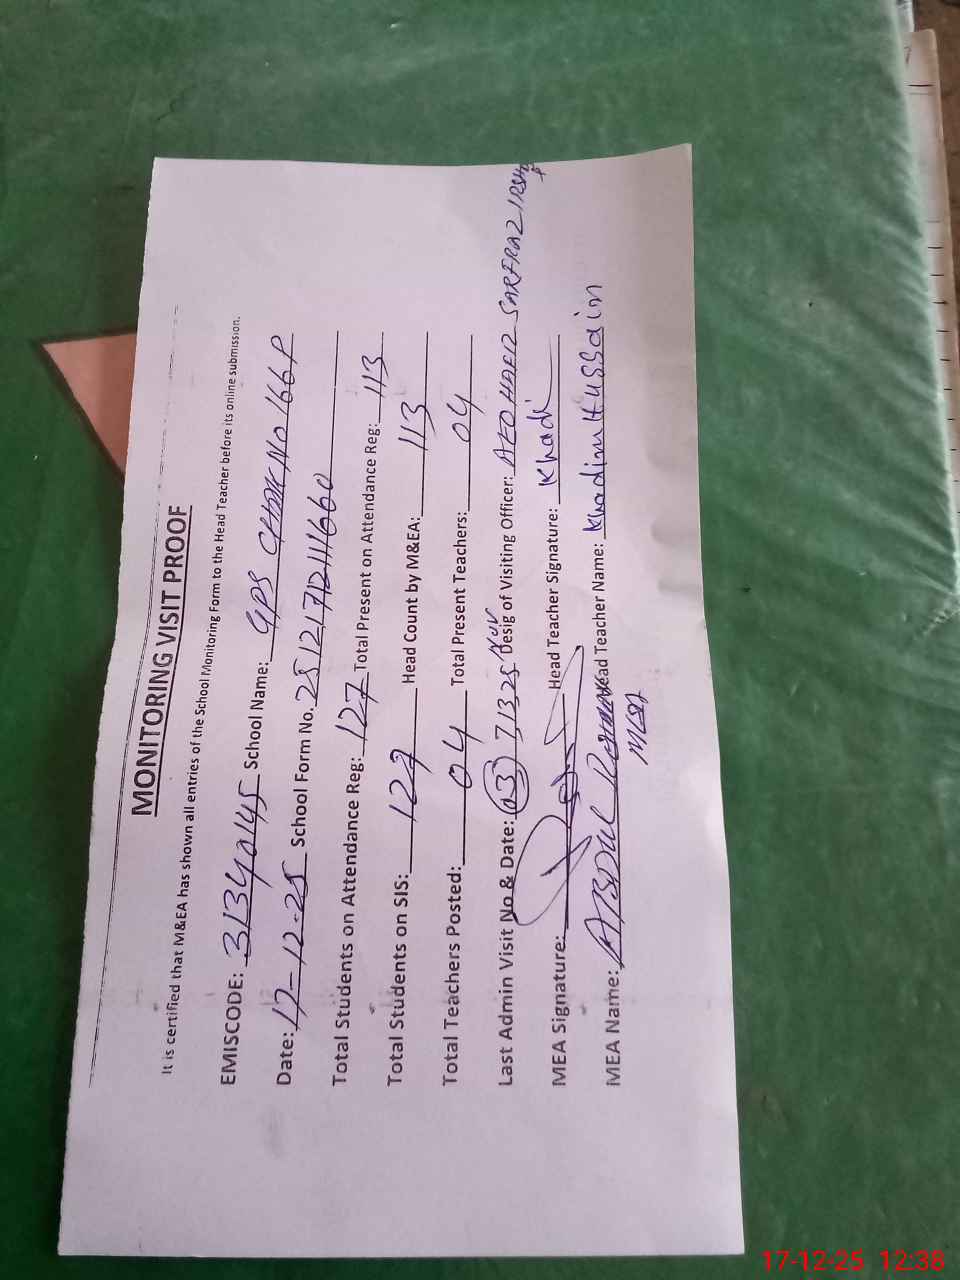 MONITORING VISIT PROOF
It is certified that M&EA has shown all entries of the School Monitoring Form to the Head Teacher before its online submission.
EMISCODE: 31340145 School Name: GPS CHAK No 166P
Date: 17-12-25 School Form No. 251217121111660
Total Students on Attendance Reg: 127 Total Present on Attendance Reg: 113
Total Students on SIS: 127 Head Count by M&EA: 113
Total Teachers Posted: 04 Total Present Teachers: 04
Last Admin Visit No & Date: 03 Desig of Visiting Officer: AEO HAFIZ SARFRAZ IRSHAD
MEA Signature: Head Teacher Signature: Khadi
MEA Name: ABDUL Rehman Head Teacher Name: Khadim Hussain
17-12-25 12:38